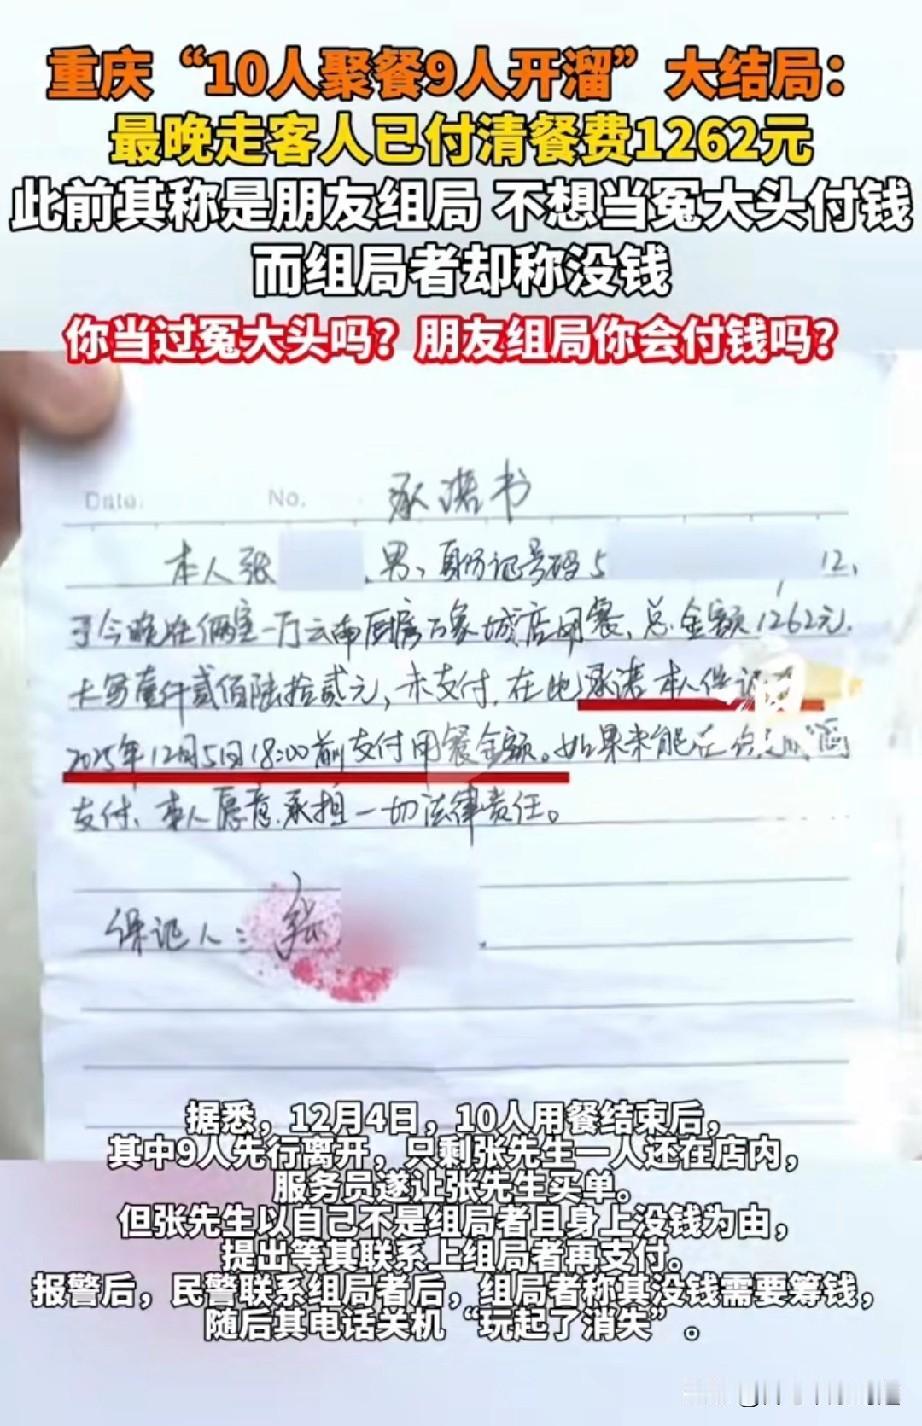 重庆“10人聚餐9人开溜”大结局：
最晚走客人已付清餐费1262元
此前其称是朋友组局 不想当冤大头付钱
而组局者却称没钱
你当过冤大头吗？朋友组局你会付钱吗？
Date. No. 承诺书
本人张 ，男，身份证号码5 12，
于今晚在俩室一厅云南厨房万象城店用餐，总金额1262元，
大写壹仟贰佰陆拾贰元，未支付，在此承诺本人保证
2025年12月5日18:00前支付用餐金额。如果未能在
支付，本人愿意承担一切法律责任。
保证人：张
据悉，12月4日，10人用餐结束后，
其中9人先行离开，只剩张先生一人还在店内，
服务员遂让张先生买单。
但张先生以自己不是组局者且身上没钱为由，
提出等其联系上组局者再支付。
报警后，民警联系组局者后，组局者称其没钱需要筹钱，
随后其电话关机“玩起了消失”。